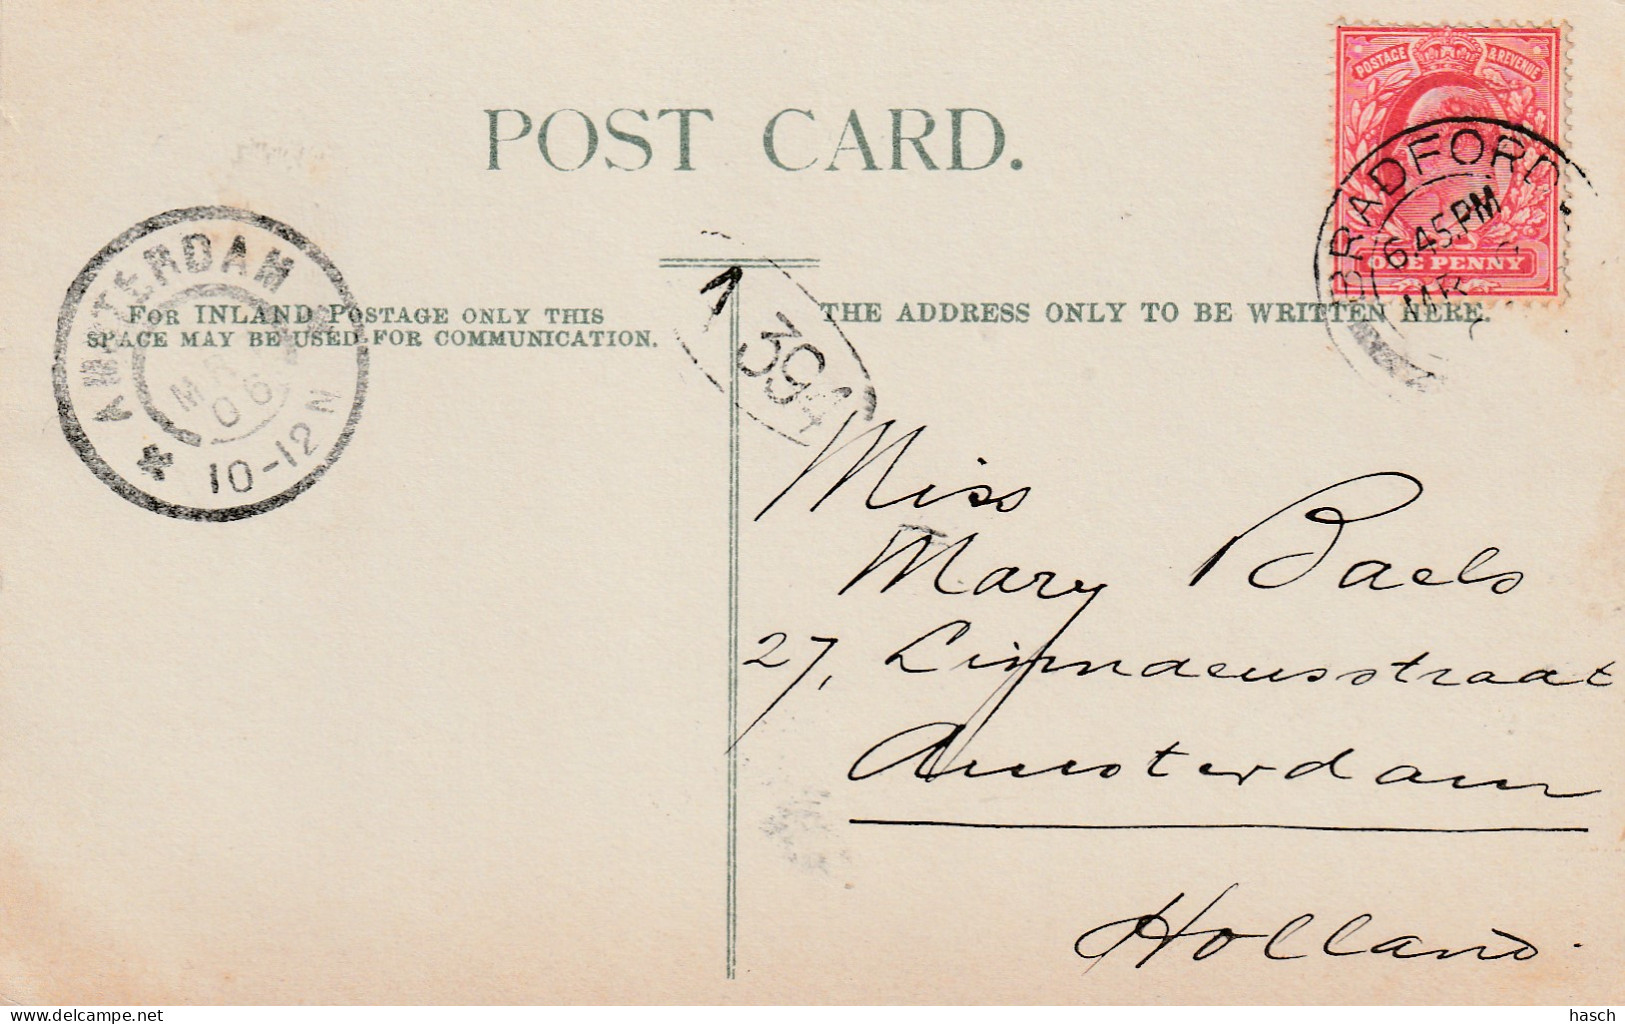 POST CARD.
POSTAGE & REVENUE
ONE PENNY
BRADFORD
6.45.PM
MR
AMSTERDAM
MR
06
10-12N
1
394
FOR INLAND POSTAGE ONLY THIS
SPACE MAY BE USED FOR COMMUNICATION.
THE ADDRESS ONLY TO BE WRITTEN HERE.
Miss
Mary Baels
27, Linnaeusstraat
Amsterdam
Holland.
www.delcampe.net
hasch